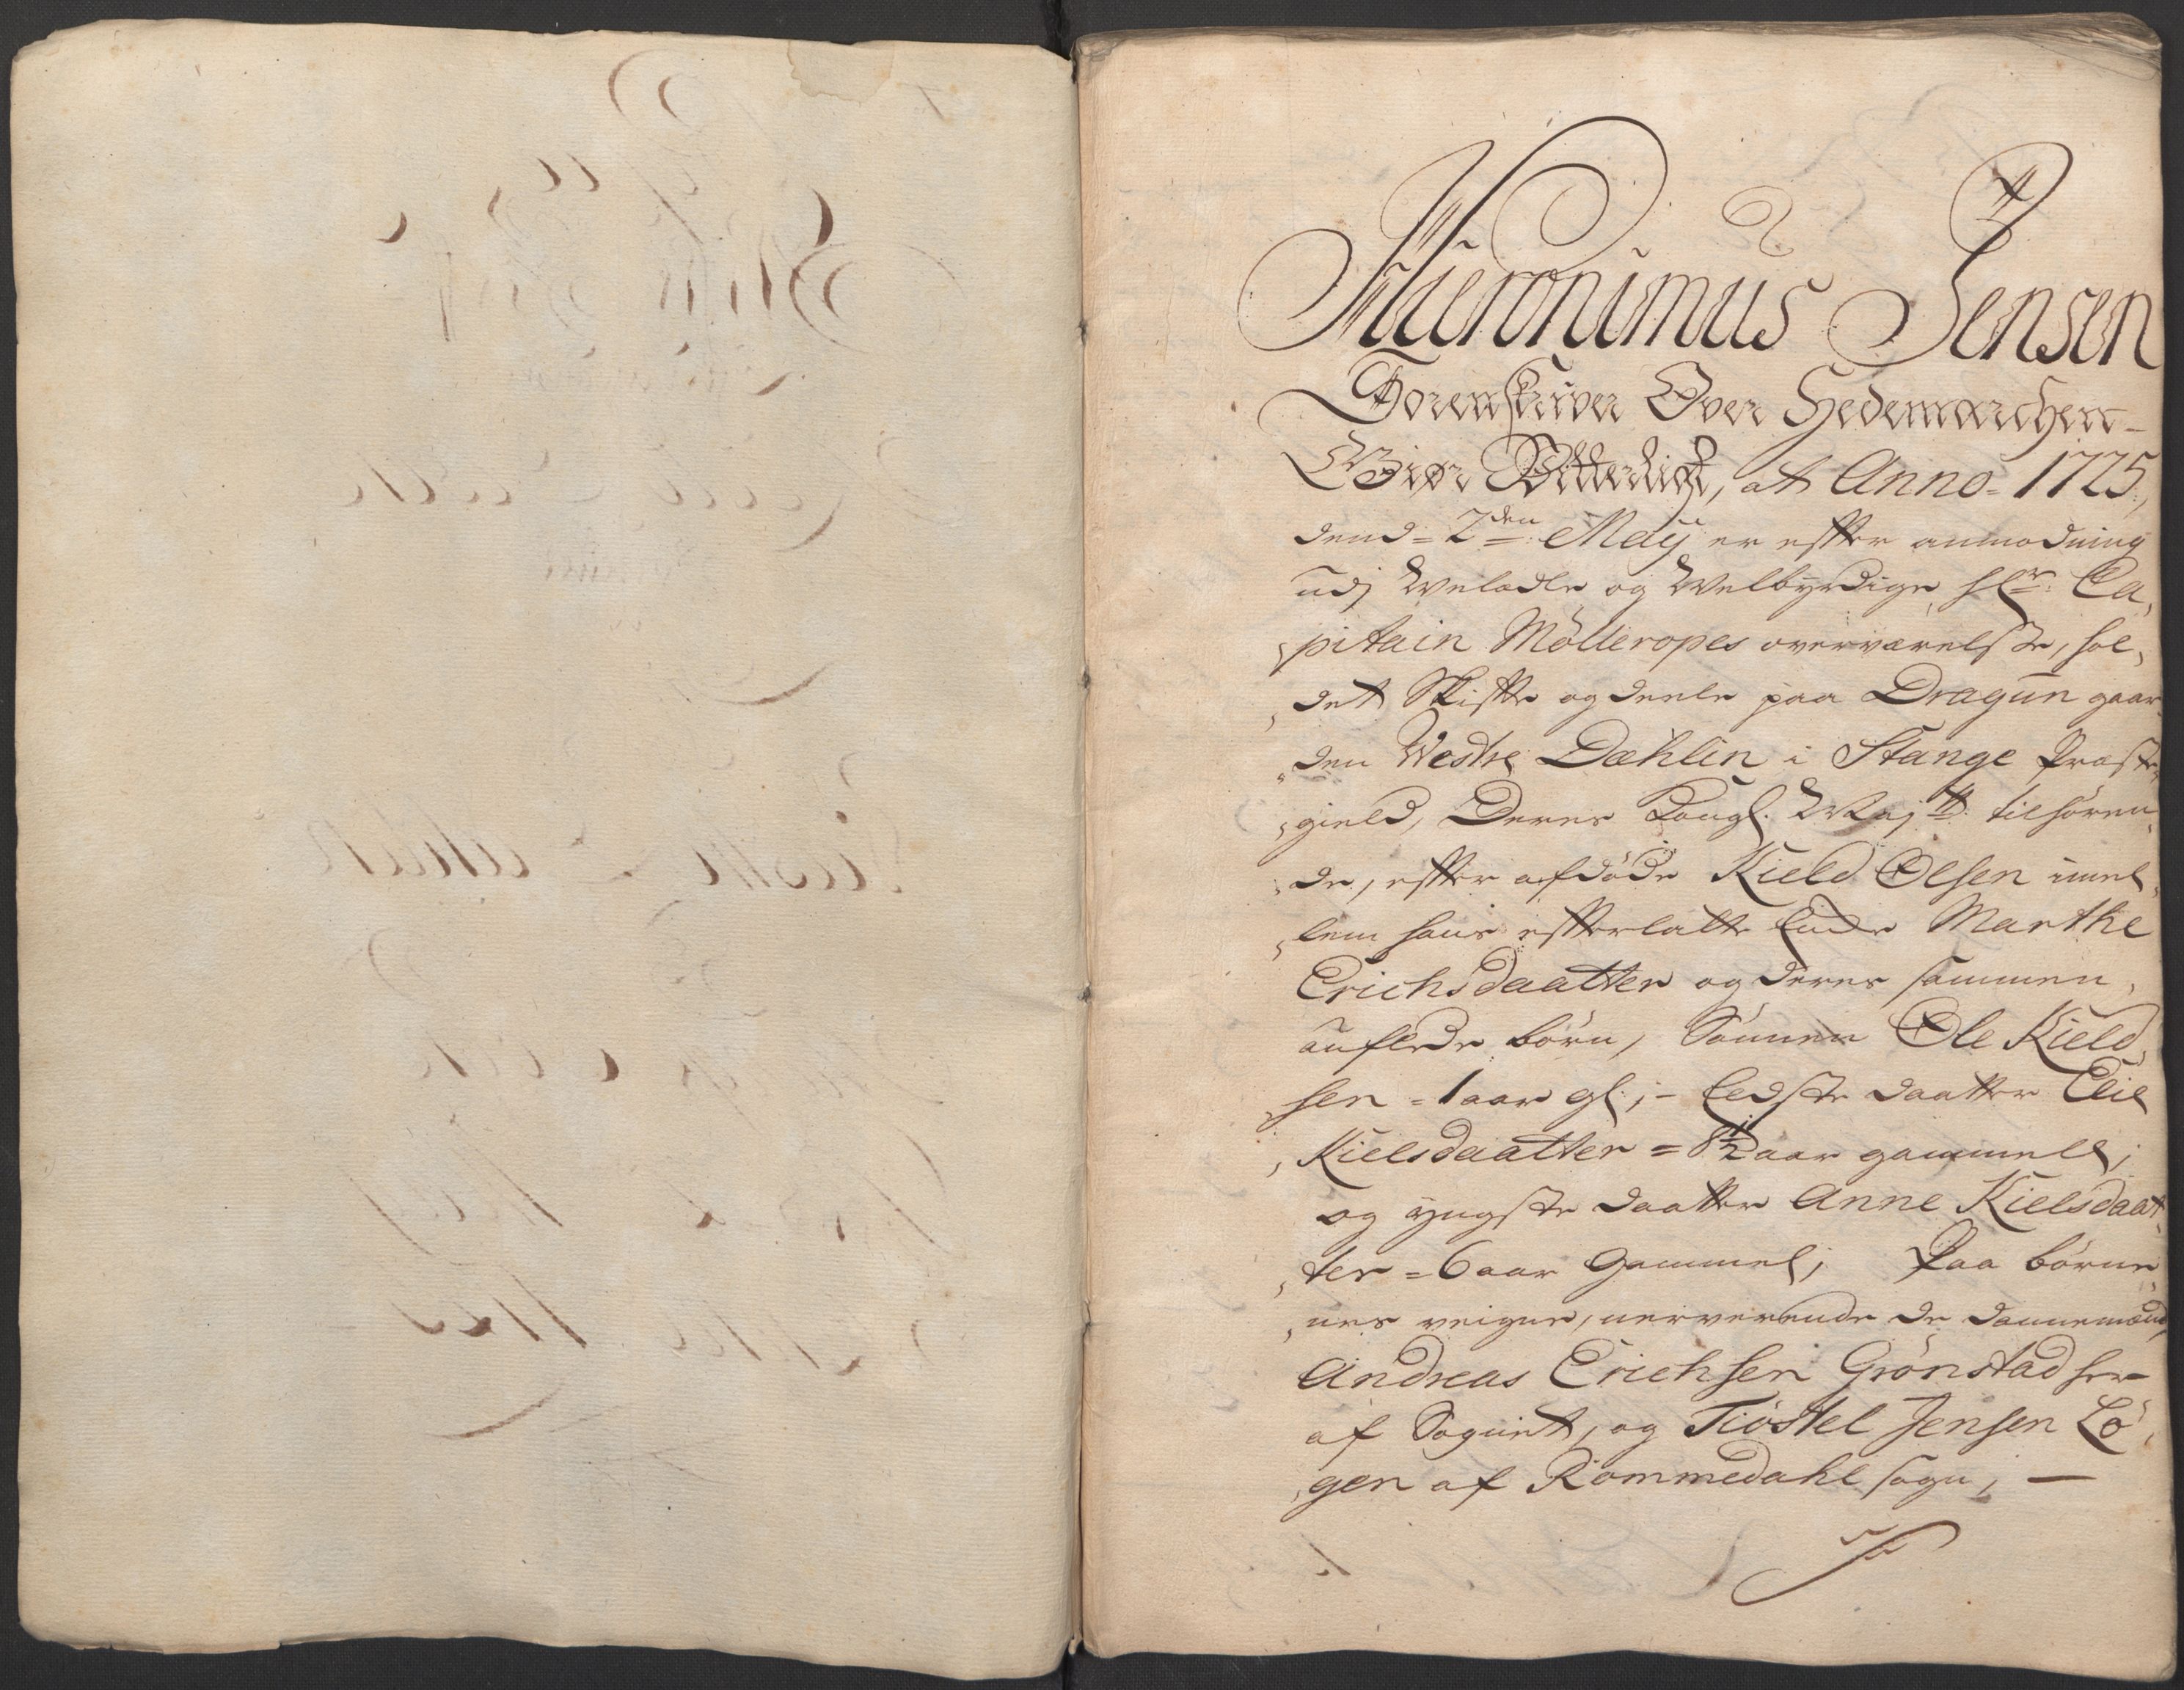 Hieronimus Jensen
Sorenskriver Over Hedemarchen
Giør Witterligt, at Anno 1725,
dend 2den Maÿ er effter anmodning
udj Welædle og Welbÿrdige Hr: Ca,
,pitain Mölleropes overværelsse, hol,
,det Skiffte og deele paa Dragun gaar,
,den Westre Dæhlin i Stange Præste,
,gield, Deres Kongl. Maj:tt tilhören,
,de, effter afdöde Kield Olsen imel,
,lem hans effterlatte Encke Marthe
Erichsdaatter og deres sammen,
auflede börn, Sönnen Ole Kield,
,sen = 1 aar gl:, - Eedste daatter Elie
,Kielsdaatter = 8½ aar gammell;
og yngste daatter Anne Kielsdaat,
,ter = 6 aar Gammel; Paa börne,
,nes veigne, nerverende de dannemænd,
Andreas Erichsen Grönstad her
af Sognet, og Tiöstel Jensen Lö,
,gen af Rommedahl sogn; —